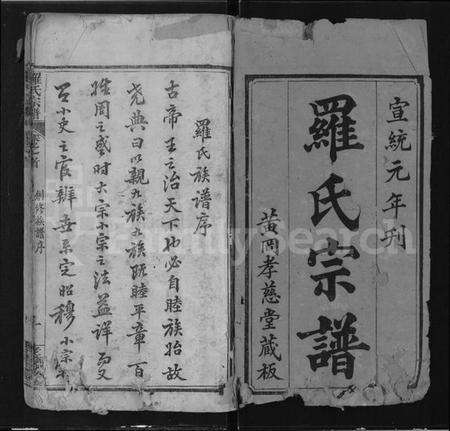 宣統元年刋
羅氏宗譜
黃岡孝慈堂藏板
羅氏族譜序
古帝王之治天下也必自睦族始故
堯典曰以親九族九族既睦平章百
姓周之盛時大宗小宗之法益詳
小史之官辨世系定昭穆小宗
羅氏宗譜
FamilySearch